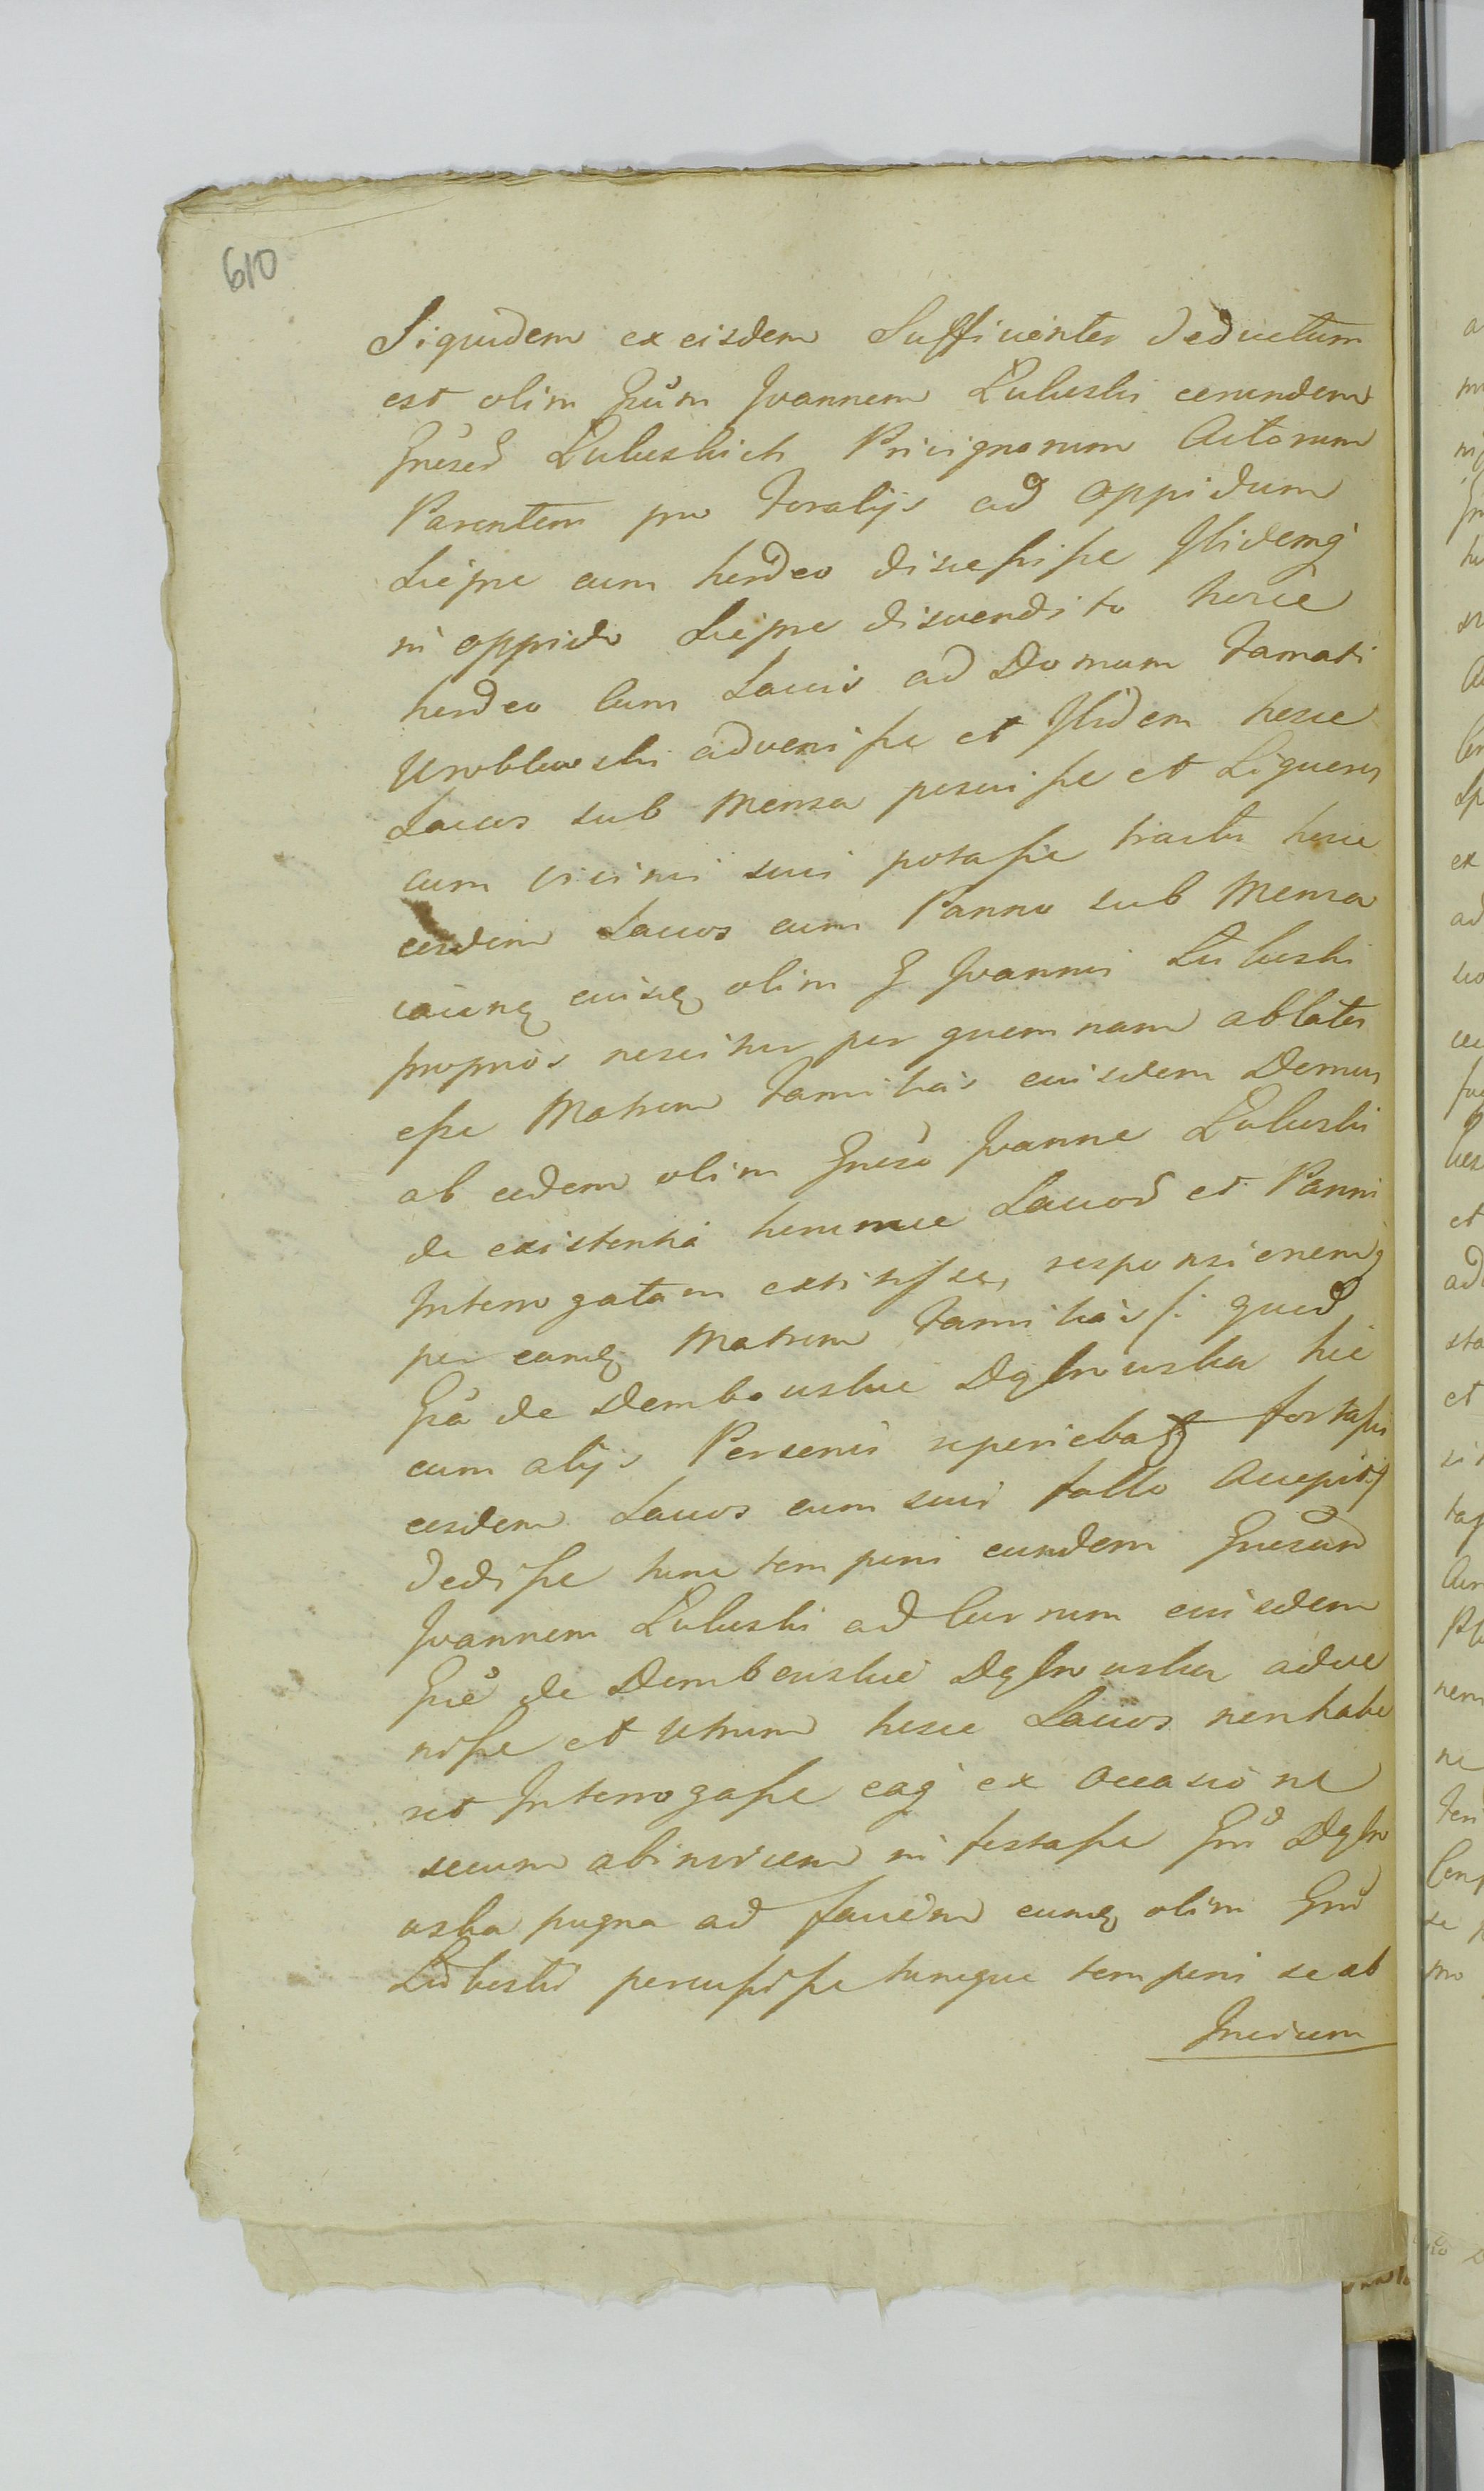 610
Siquidem ex eisdem Sufficienter deductum
est olim Gsum Joannem Lubuski eorundem
Gnesed Lubuskich Privignorum Actorum
Parentem pro Foralijs ad oppidum
Liepie cum hordeo discessisse Ibidemq
in oppido Liepie divendito hocce
hordeo Cum Saccis ad Domum Famati
Wroblewski advenisse et Ibidem hosce
Saccos sub Mensa posuisse et Liquores
cum vicinis suis potasse tractu hocce
eosdem Saccos cum Panno sub Mensa
eiusq olim G Joannis Lubuski
proprios nescitur per quemnam ablatos
esse Matrem Familias eiusdem Domus
ab eodem olim Gneso Joanne Lubuski
de existentia horumce Saccor et Panni
Interrogatam extitisse, responsionemq
per eamq Matrem Familias /: quod
Gsa de Dembowskie Dąbrowska hic
cum alijs Personis reperiebat fortassis
eosdem Saccos cum suis fallo Accepit :/
dedisse tunc temporis eundem Gnesum
Joannem Lubuski ad Currum eiusdem
Gse de Dembowskie Dąbrowska adve
nisse et utrum hosce Saccos non habe
ret Interrogasse eaq ex Occasione
secum abinvicem infestasse Gm Dąbro
wska pugna ad faciem eumq olim Gm
Lubuski percussisse tuncque temporis se ab
Invicem